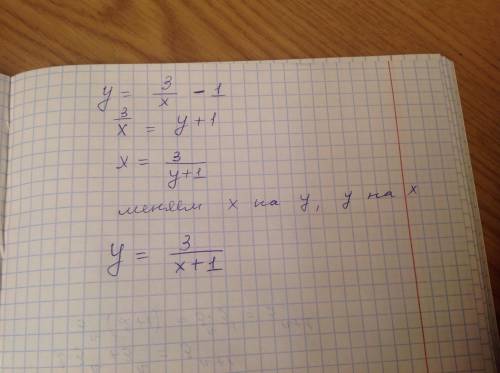 y = 3/x - 1
3/x = y + 1
x = 3/(y+1)
меняем x на y, y на x
y = 3/(x+1)